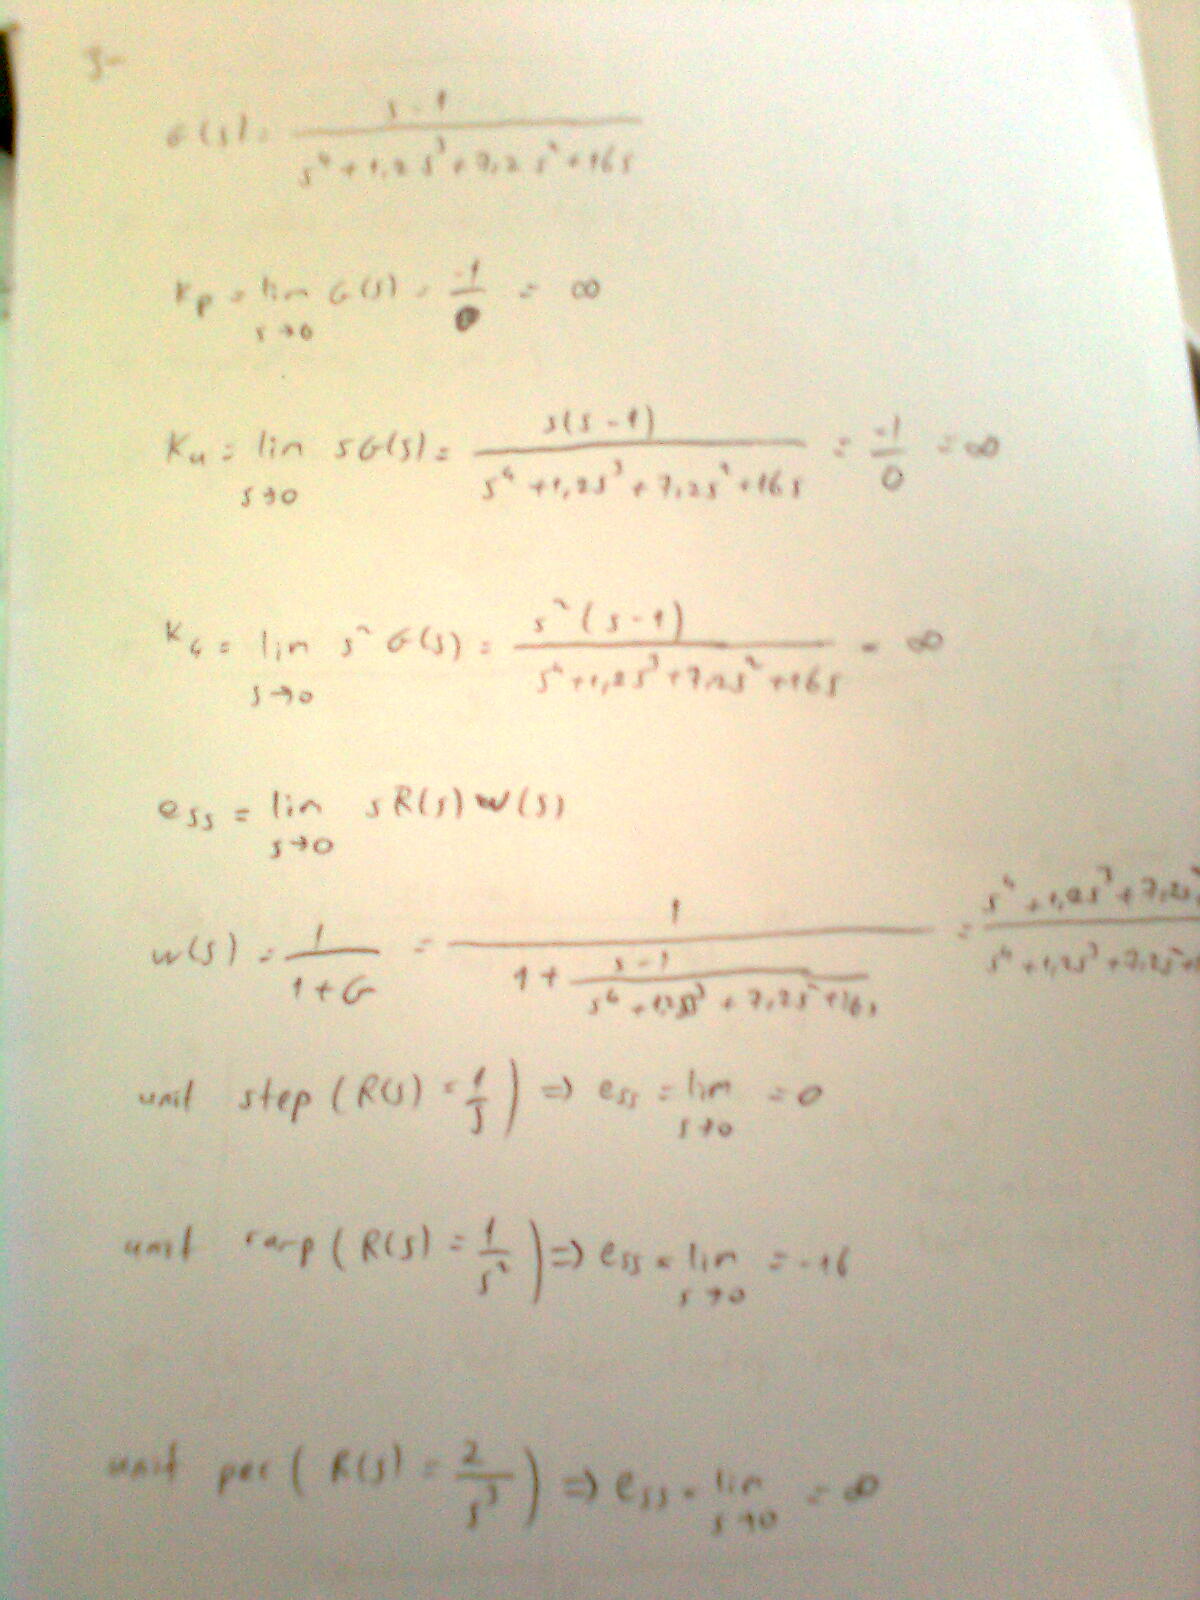 5-
G(s) = (s-1)/(s⁴+1,2s³+7,2s²+16s)
Kp = lim s→0 G(s) = -1/0 = ∞
Ku = lim s→0 sG(s) = s(s-1)/(s⁴+1,2s³+7,2s²+16s) = -1/0 = ∞
K = lim s→0 s² G(s) = s²(s-1)/(s⁴+1,2s³+7,2s²+16s) = ∞
ess = lim s→0 sR(s)w(s)
w(s) = 1/(1+G) = 1/(1+(s-1)/(s⁴+1,2s³+7,2s²+16s)) = (s⁴+1,2s³+7,2s²)/(s⁴+1,2s³+7,2s²+
unit step (R(s) = 1/s) ⇒ ess = lim s→0 = 0
unit ramp (R(s) = 1/s²) ⇒ ess = lim s→0 = -16
unit par (R(s) = 2/s³) ⇒ ess = lim s→0 = ∞